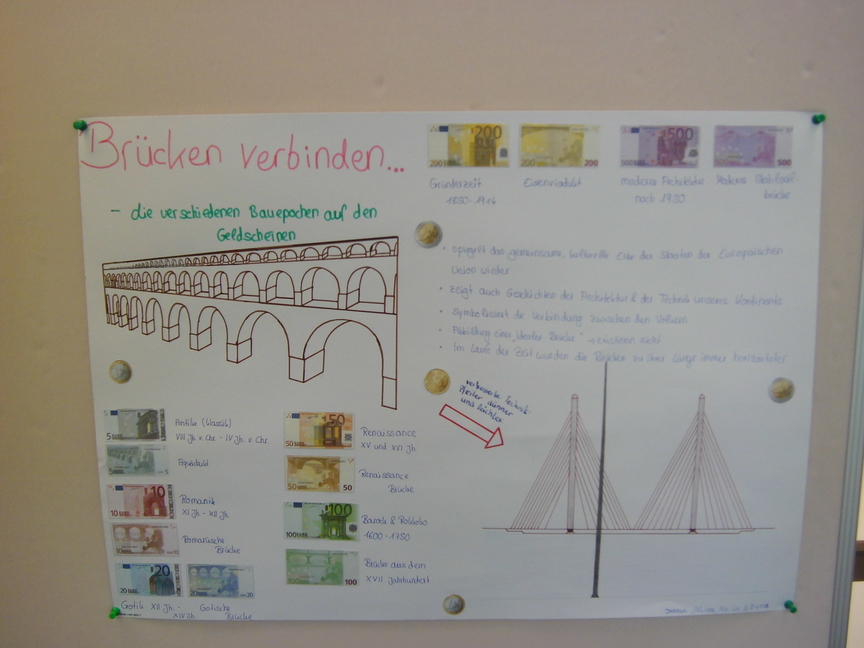 Brücken verbinden...
- die verschiedenen Bauepochen auf den
Geldscheinen
200
200
Gründerzeit
1850-1914
200
Eisenviadukt
500
500
moderne Architektur
nach 1950
500
Moderne
brücke
• spiegelt das gemeinsame, kulturelle Erbe der Staaten der Europäischen
Union wieder
• zeigt auch Geschichten der Architektur & der Technik unseres Kontinents
• Symbolisiert die Verbindung zwischen den Völkern
• Abbildung einer "idealer Brücke" → existieren nicht
• Im Laufe der Zeit wurden die Brücken zu ihrer Länge immer horizontaler
verbesserte Technik:
Pfeiler dünner
und leichter
5 EURO
Antike (Klassik)
VIII Jh. v. Chr. - IV Jh. v. Chr.
5
Aquädukt
10
10 EURO
Romanik
XI Jh - XII Jh.
10
Romanische
Brücke
20
20 EURO
20
Gotik XII Jh. -
XIV Jh
Gotische
Brücke
50
50 EURO
Renaissance
XV und XVI Jh.
50
Renaissance
Brücke
100
100 EURO
Barock & Rokkoko
1600-1750
100
Brücke aus dem
XVII Jahrhundert